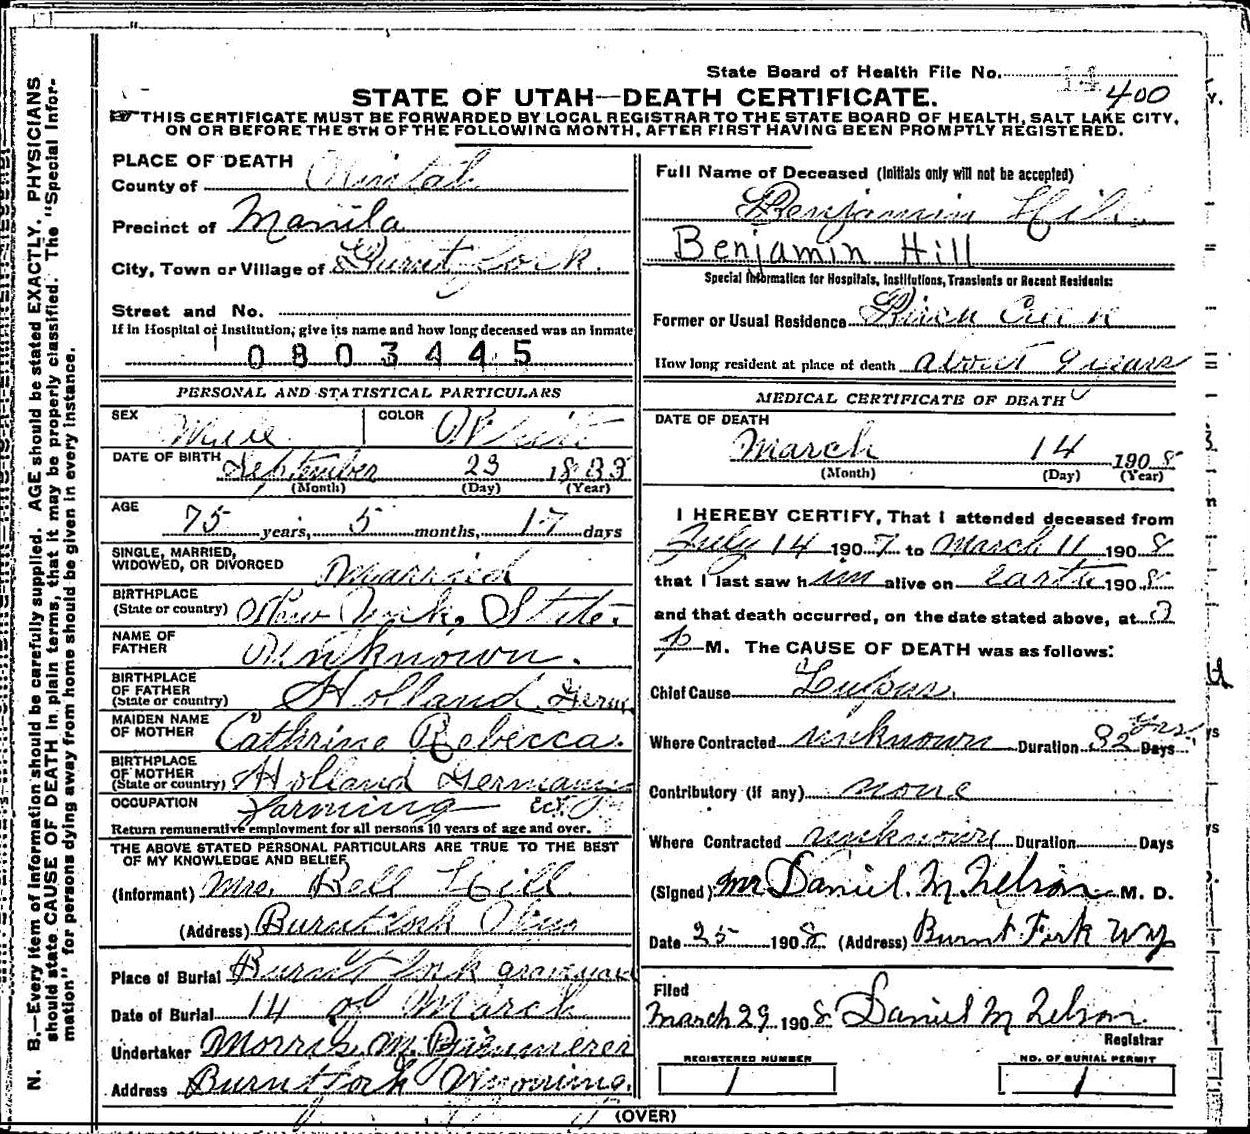 State Board of Health File No. 14
400
STATE OF UTAH—DEATH CERTIFICATE.
THIS CERTIFICATE MUST BE FORWARDED BY LOCAL REGISTRAR TO THE STATE BOARD OF HEALTH, SALT LAKE CITY,
ON OR BEFORE THE 5TH OF THE FOLLOWING MONTH, AFTER FIRST HAVING BEEN PROMPTLY REGISTERED.
N. B.—Every item of information should be carefully supplied. AGE should be stated EXACTLY. PHYSICIANS
should state CAUSE OF DEATH in plain terms, that it may be properly classified. The "Special Infor-
mation" for persons dying away from home should be given in every instance.
PLACE OF DEATH
County of Uintah
Precinct of Manila
City, Town or Village of Burnt fork.
Street and No.
If in Hospital or Institution, give its name and how long deceased was an inmate
0803445
PERSONAL AND STATISTICAL PARTICULARS
SEX Male COLOR White
DATE OF BIRTH September 23 1833
(Month) (Day) (Year)
AGE
75 years, 5 months, 17 days
SINGLE, MARRIED,
WIDOWED, OR DIVORCED Married
BIRTHPLACE
(State or country) New York. State.
NAME OF
FATHER Unknown.
BIRTHPLACE
OF FATHER
(State or country) Holland Germ
MAIDEN NAME
OF MOTHER Cathrine Rebecca.
BIRTHPLACE
OF MOTHER
(State or country) Holland Germany
OCCUPATION Farming
Return remunerative employment for all persons 10 years of age and over.
THE ABOVE STATED PERSONAL PARTICULARS ARE TRUE TO THE BEST
OF MY KNOWLEDGE AND BELIEF
(Informant) Mrs. Bell Hill.
(Address) Burnt fork Wyo
Place of Burial Burnt fork graveyard
Date of Burial 14 of March
Undertaker Morris. M.
Address Burnt fork Wyoming.
Full Name of Deceased (Initials only will not be accepted)
Benjamin Hill
Benjamin Hill
Special Information for Hospitals, Institutions, Transients or Recent Residents:
Former or Usual Residence Birch Creek
How long resident at place of death about 9 years
MEDICAL CERTIFICATE OF DEATH
DATE OF DEATH
March 14 1908
(Month) (Day) (Year)
I HEREBY CERTIFY, That I attended deceased from
July 14 1907 to March 11 1908
that I last saw him alive on earth 1908
and that death occurred, on the date stated above, at 3
p M. The CAUSE OF DEATH was as follows:
Chief Cause Lupus.
yrs.
Where Contracted unknown Duration 32 Days
Contributory (if any) none
Where Contracted unknown Duration Days
(Signed) Mr Daniel. M. Nelson M. D.
Date 25 1908 (Address) Burnt Fork Wy
Filed
March 29 1908 Daniel M Nelson
Registrar
REGISTERED NUMBER
1
NO. OF BURIAL PERMIT
1
(OVER)